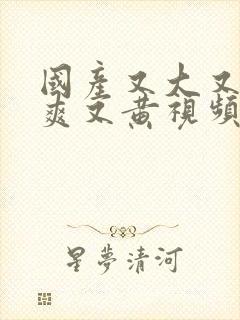 國產又大又
爽又黃視頻
星夢清河